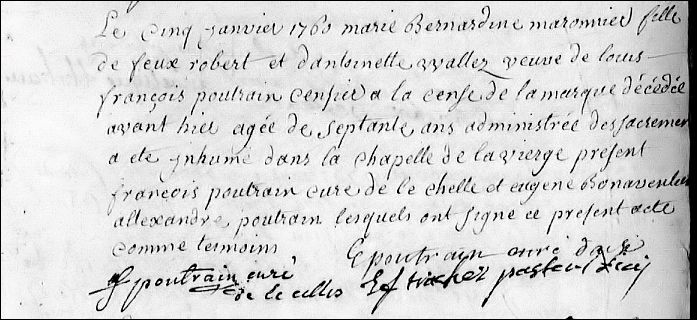 Le cinq janvier 1760 marie Bernardine maronnier fille
de feux robert et dantoinette wallez veuve de louis
françois poutrain censier a la cense de la marque décédée
avant hier agée de septante ans administrée des sacremen
a ete inhume dans la chapelle de la vierge présent
françois poutrain curé de le chelle et eugene Bonaventure
allexandre poutrain lesquels ont signe ce present acte
comme temoins
poutrain curé
poutrain curé
de le celles
pasteur